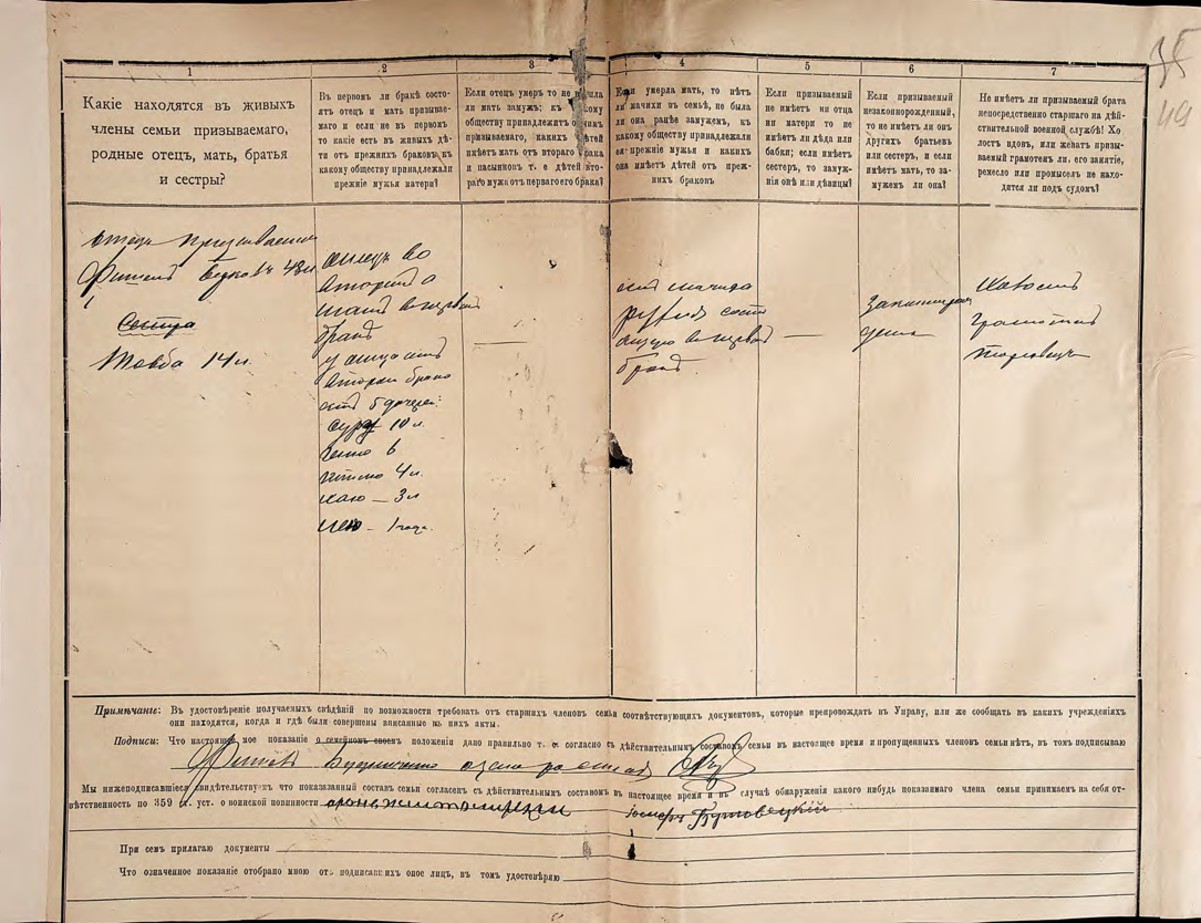 35
49
1
2
3
4
5
6
7
Какіе находятся въ живыхъ
члены семьи призываемаго,
родные отецъ, мать, братья
и сестры?
Въ первомъ ли бракѣ состо-
ятъ отецъ и мать призывае-
маго и если не въ первомъ
то какіе есть въ живыхъ дѣ-
ти отъ прежнихъ браковъ къ
какому обществу принадлежали
прежніе мужья матери?
Если отецъ умеръ то не вышла
ли мать замужъ; къ какому
обществу принадлежитъ отчимъ
призываемаго, какихъ дѣтей
имѣетъ мать отъ втораго брака
и пасынковъ т. е дѣтей вто-
раго мужа отъ перваго его брака?
Если умерла мать, то нѣтъ
ли мачихи въ семьѣ, не была
ли она ранѣе замужемъ, къ
какому обществу принадлежали
ея прежніе мужья и какихъ
она имѣетъ дѣтей отъ преж-
нихъ браковъ
Если призываемый
не имѣетъ ни отца
ни матери то не
имѣетъ ли дѣда или
бабки; если имѣетъ
сестеръ, то замуж-
нія онѣ или дѣвицы?
Если призываемый
незаконнорожденный,
то не имѣетъ ли онъ
другихъ братьевъ
или сестеръ, и если
имѣетъ мать, то за-
мужемъ ли она?
Не имѣетъ ли призываемый брата
непосредственно старшаго на дѣй-
ствительной военной службѣ! Хо
лостъ вдовъ, или женатъ призы-
ваемый грамотенъ ли, его занятіе,
ремесло или промыселъ не нахо-
дится ли подъ судомъ?
отецъ призываемаго
Фишель Берковъ 48 л
Сестра
Товба 14 л.
отецъ во
второмъ а
мать въ первомъ
бракѣ
у отца отъ
второго брака
есть 5 дочерей:
Сура 10 л.
6
4 л.
Хаю — 3 л
— 1 года.
есть мачиха
сост
въ первомъ
бракѣ
—
—
холостъ
грамотенъ
торговецъ
Примѣчаніе: Въ удостовѣреніе получаемыхъ свѣдѣній по возможности требовать отъ старшихъ членовъ семьи соотвѣтствующихъ документовъ, которые препровождать въ Управу, или же сообщать въ какихъ учрежденіяхъ
они находятся, когда и гдѣ были совершены вписанные въ нихъ акты.
Подписи: Что настоящее мое показаніе о семейномъ своемъ положеніи дано правильно т. е. согласно съ дѣйствительнымъ составомъ семьи въ настоящее время и пропущенныхъ членовъ семьи нѣтъ, въ томъ подписываю
Фишель
Мы нижеподписавшіеся свидѣтельствуемъ что показазанный составъ семьи согласенъ съ дѣйствительнымъ составомъ въ настоящее время и въ случаѣ обнаруженія какого нибудь показаннаго члена семьи принимаемъ на себя от-
вѣтственность по 359 ст. уст. о воинской повинности
При семъ прилагаю документы
Что означенное показаніе отобрано мною отъ подписавшихъ оное лицъ, въ томъ удостовѣряю